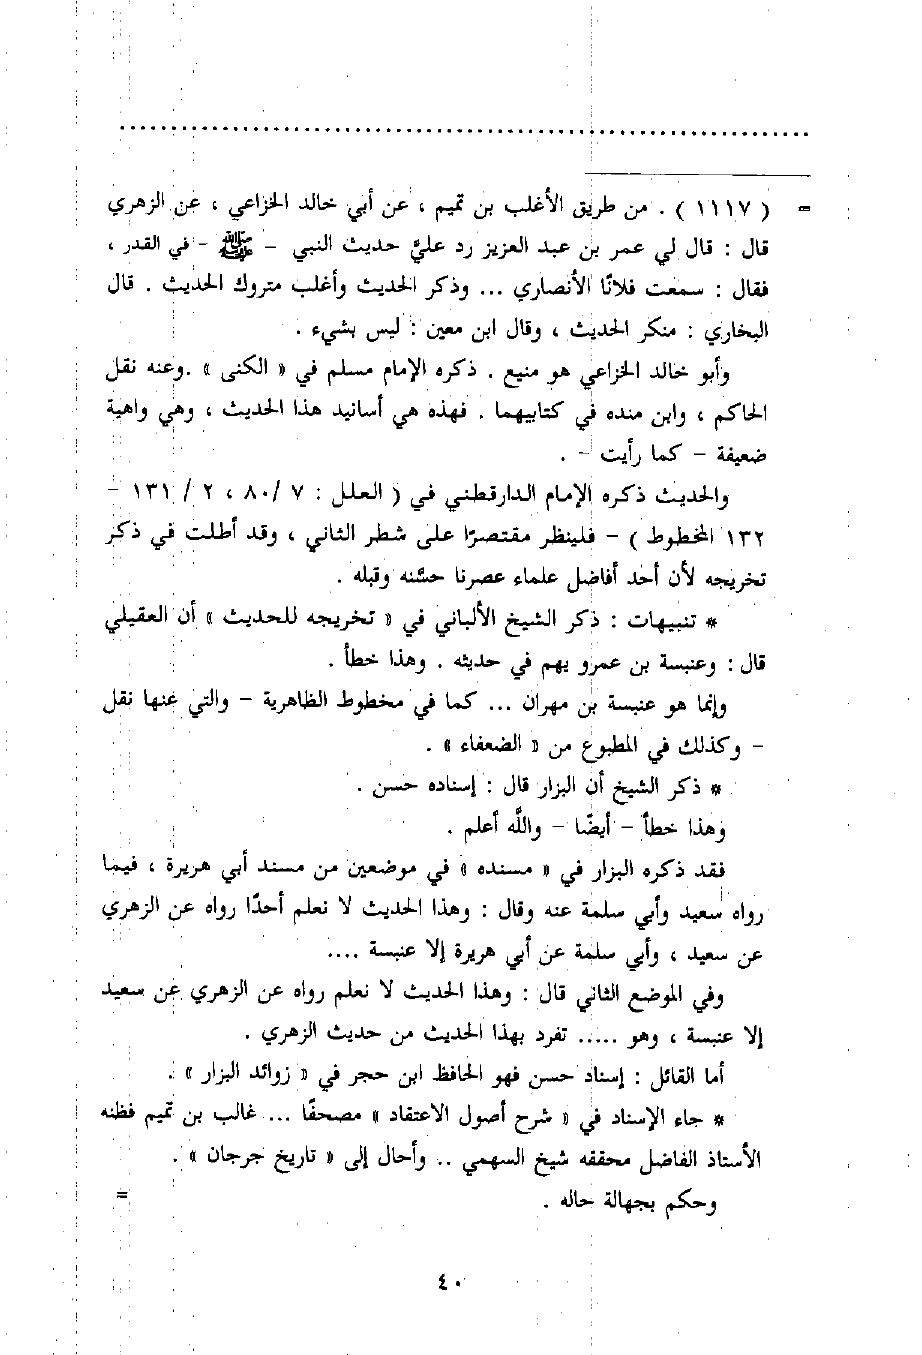 = ( ١١١٧ ) . من طريق الأغلب بن تميم ، عن أبي خالد الخزاعي ، عن الزهري
قال : قال لي عمر بن عبد العزيز رد عليَّ حديث النبي – ﷺ – في القدر ،
فقال : سمعت فلانًا الأنصاري ... وذكر الحديث وأغلب متروك الحديث . قال
البخاري : منكر الحديث ، وقال ابن معين : ليس بشيء .
وأبو خالد الخزاعي هو منيع . ذكره الإمام مسلم في « الكنى » . وعنه نقل
الحاكم ، وابن منده في كتابيهما . فهذه هي أسانيد هذا الحديث ، وهي واهية
ضعيفة – كما رأيت – .
والحديث ذكره الإمام الدارقطني في ( العلل : ٧ /٨٠ ، ٢ / ١٣١ –
١٣٢ المخطوط ) – فلينظر مقتصرًا على شطر الثاني ، وقد أطلت في ذكر
تخريجه لأن أحد أفاضل علماء عصرنا حسَّنه وقبله .
* تنبيهات : ذكر الشيخ الألباني في « تخريجه للحديث » أن العقيلي
قال : وعنبسة بن عمرو يهم في حديثه . وهذا خطأ .
وإنما هو عنبسة بن مهران ... كما في مخطوط الظاهرية – والتي عنها نقل
– وكذلك في المطبوع من « الضعفاء » .
* ذكر الشيخ أن البزار قال : إسناده حسن .
وهذا خطأ – أيضًا – واللَّه أعلم .
فقد ذكره البزار في « مسنده » في موضعين من مسند أبي هريرة ، فيما
رواه سعيد وأبي سلمة عنه وقال : وهذا الحديث لا نعلم أحدًا رواه عن الزهري
عن سعيد ، وأبي سلمة عن أبي هريرة إلا عنبسة ....
وفي الموضع الثاني قال : وهذا الحديث لا نعلم رواه عن الزهري عن سعيد
إلا عنبسة ، وهو ..... تفرد بهذا الحديث من حديث الزهري .
أما القائل : إسناد حسن فهو الحافظ ابن حجر في « زوائد البزار » .
* جاء الإسناد في « شرح أصول الاعتقاد » مصحفًا ... غالب بن تميم فظنه
الأستاذ الفاضل محققه شيخ السهمي .. وأحال إلى « تاريخ جرجان » .
وحكم بجهالة حاله . =
٤٠